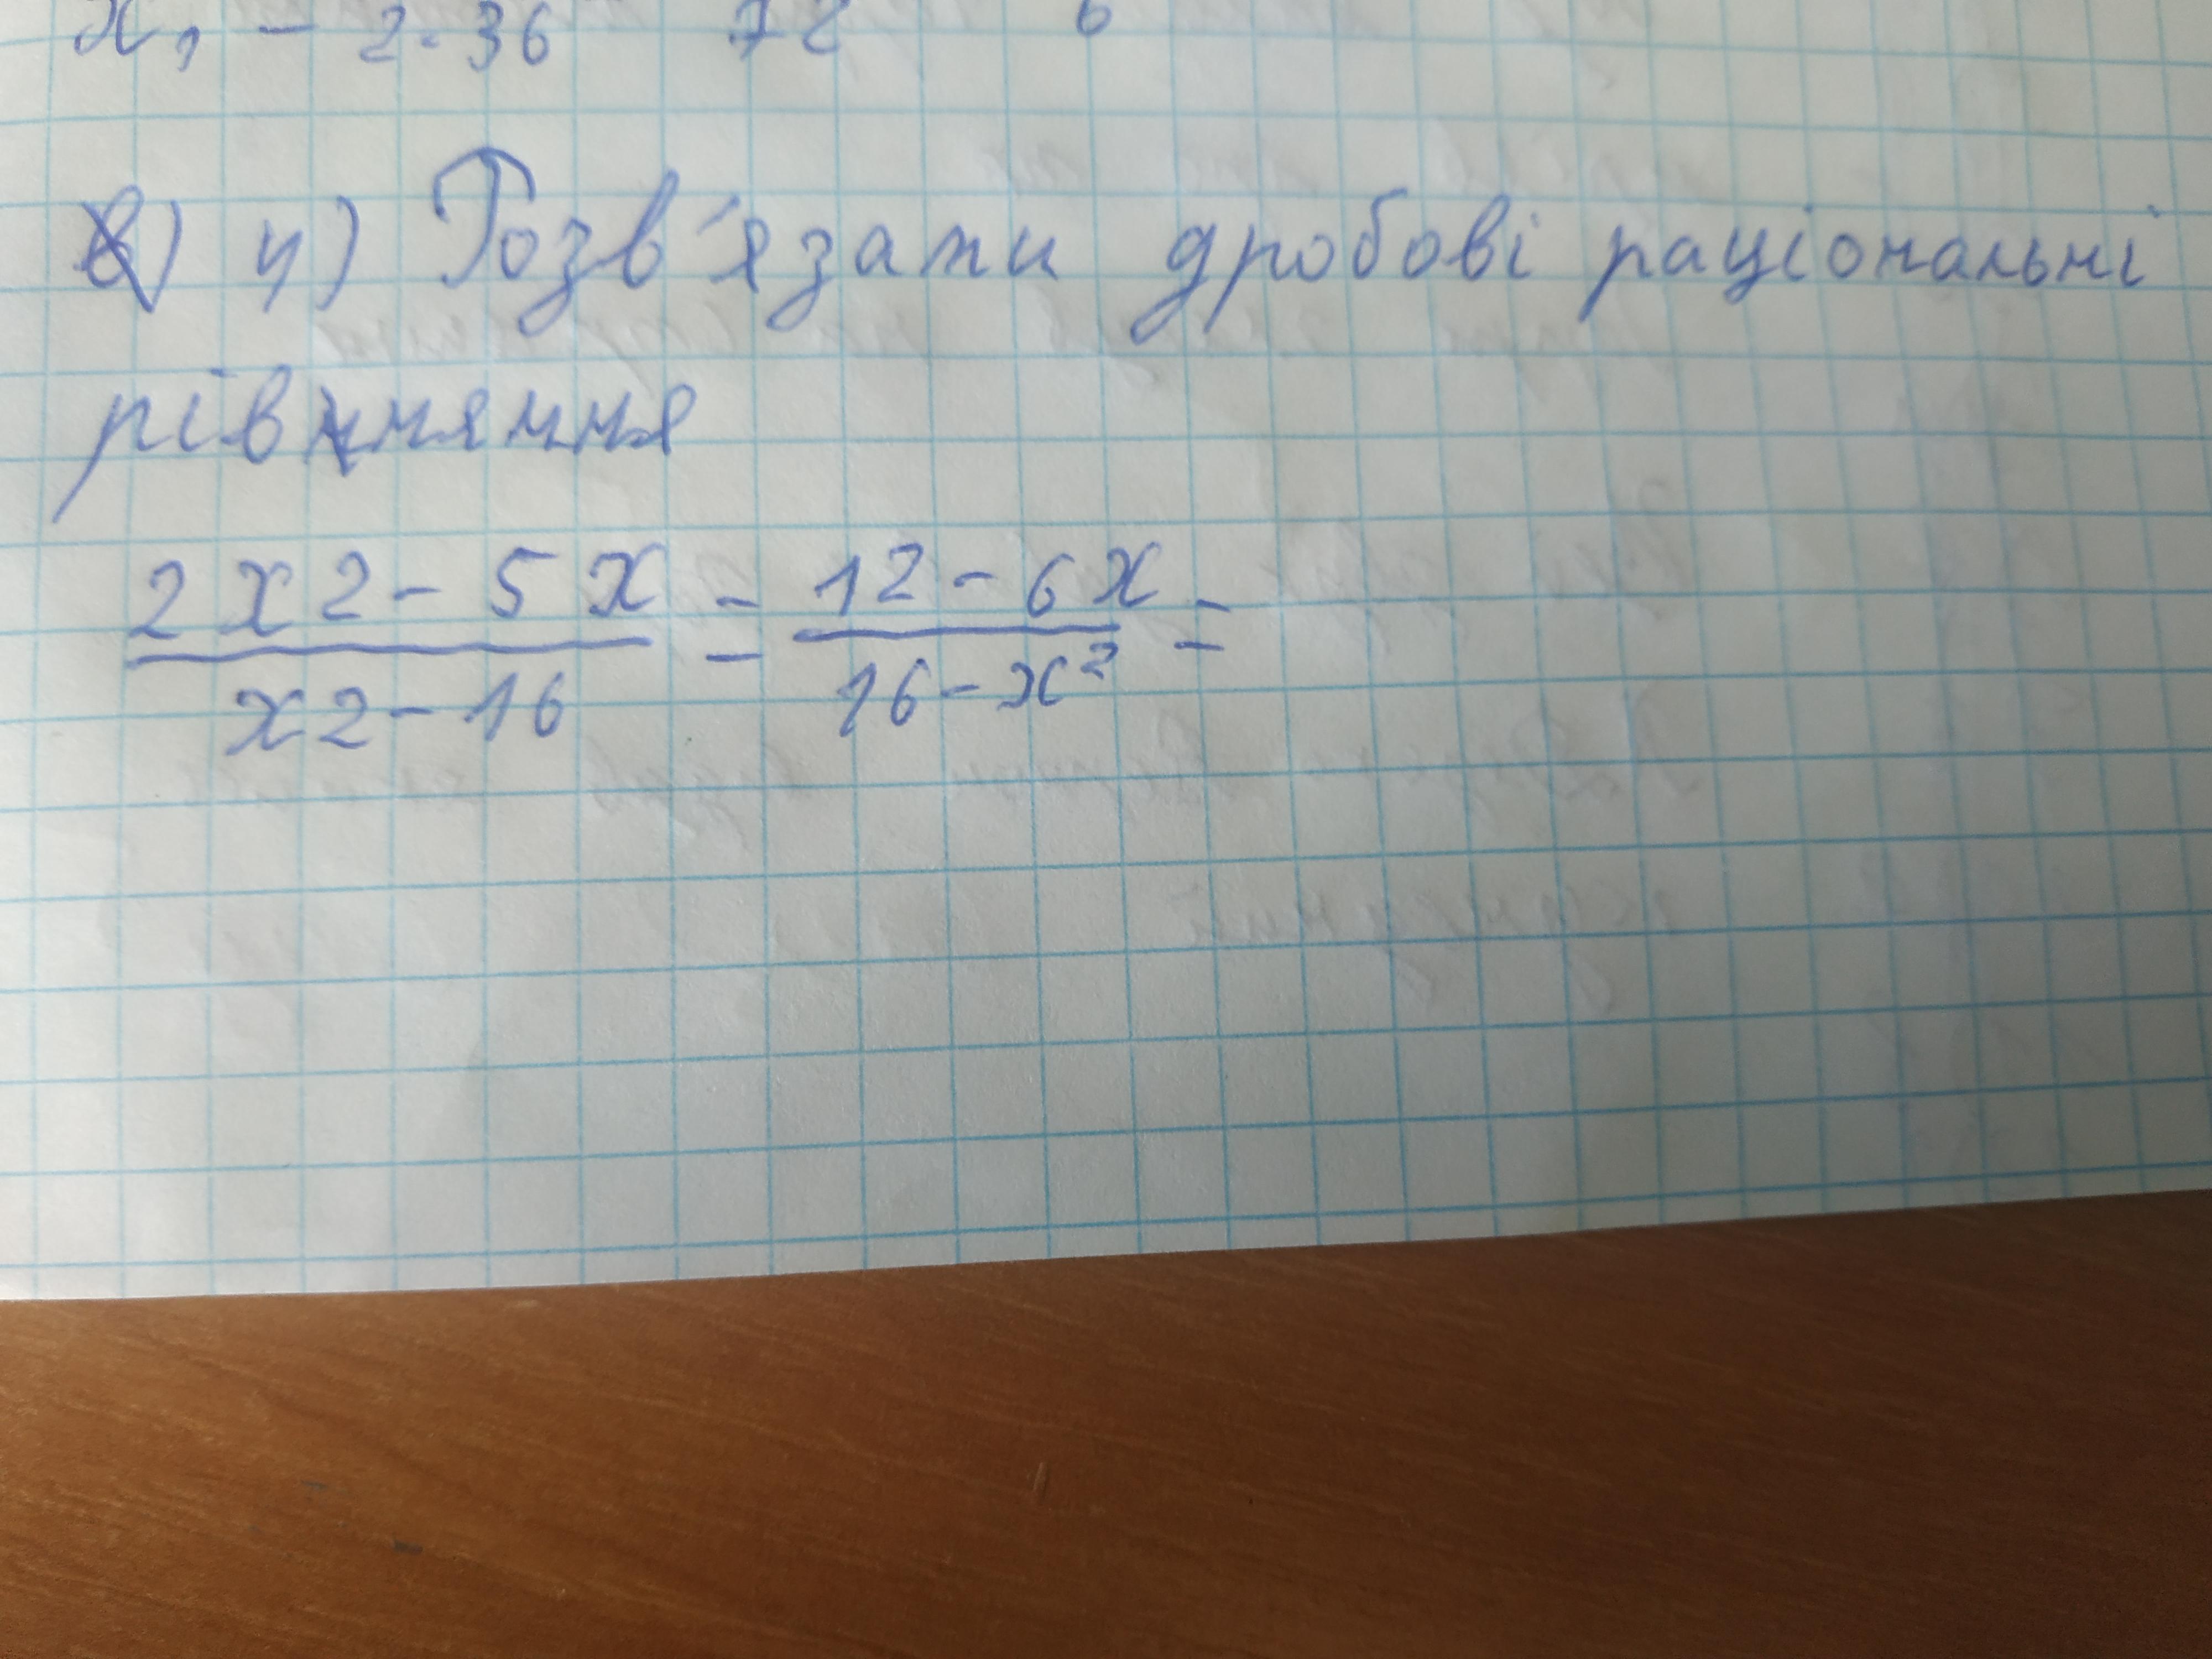 x₁ - 2·36 72 6
4) Розв'язати дробові раціональні
рівняння
2x2-5x = 12-6x =
x2-16 16-x²